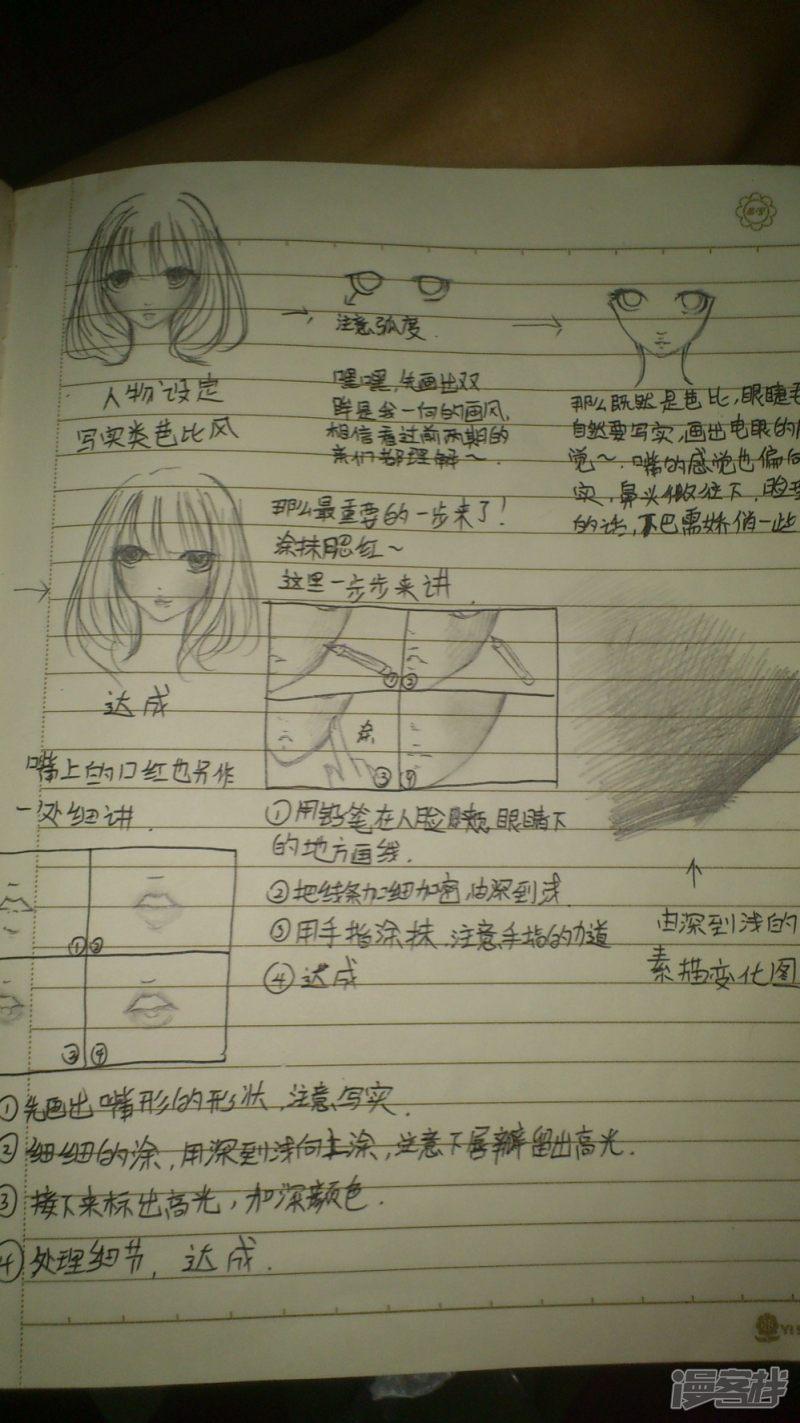 人物设定
写实类芭比风
注意弧度
嘿嘿,先画出双
眸是我一向的画风,
相信看过前两期的
亲们都理解~
那么既然是芭比,眼睫毛
自然要写实,画出电眼的
觉~.嘴的感觉也偏向
实,鼻头微往下,脸型
的话,下巴需娇俏一些
那么最重要的一步来了!
涂抹腮红~
这里一步步来讲
达成
嘴上的口红也另作
一处细讲.
① ②
涂
③ ④
①用铅笔在人脸颊,眼睛下
的地方画线.
②把线条加细加密,由深到浅
③用手指涂抹.注意手指的力道
④达成
由深到浅的
素描变化图
① ②
③ ④
①先画出嘴形的形状,注意写实.
②细细的涂,用深到浅向上涂,注意下唇瓣留出高光.
③接下来标出高光,加深颜色.
④处理细节,达成.
漫客栈